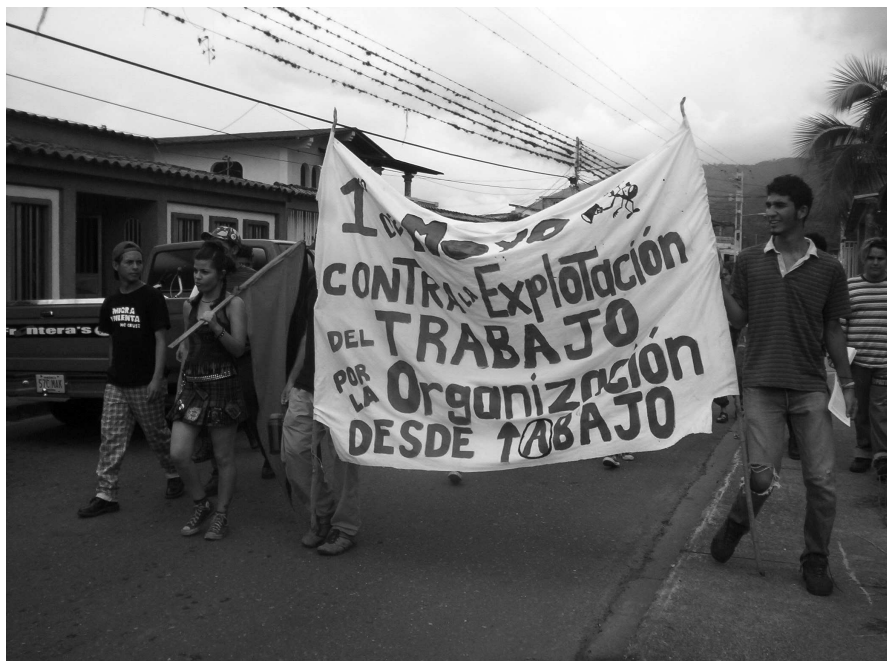 1º de Mayo
CONTRA LA ExploTación
DEL TRABAJO
POR LA Organización
DESDE ABAJO
ntera's